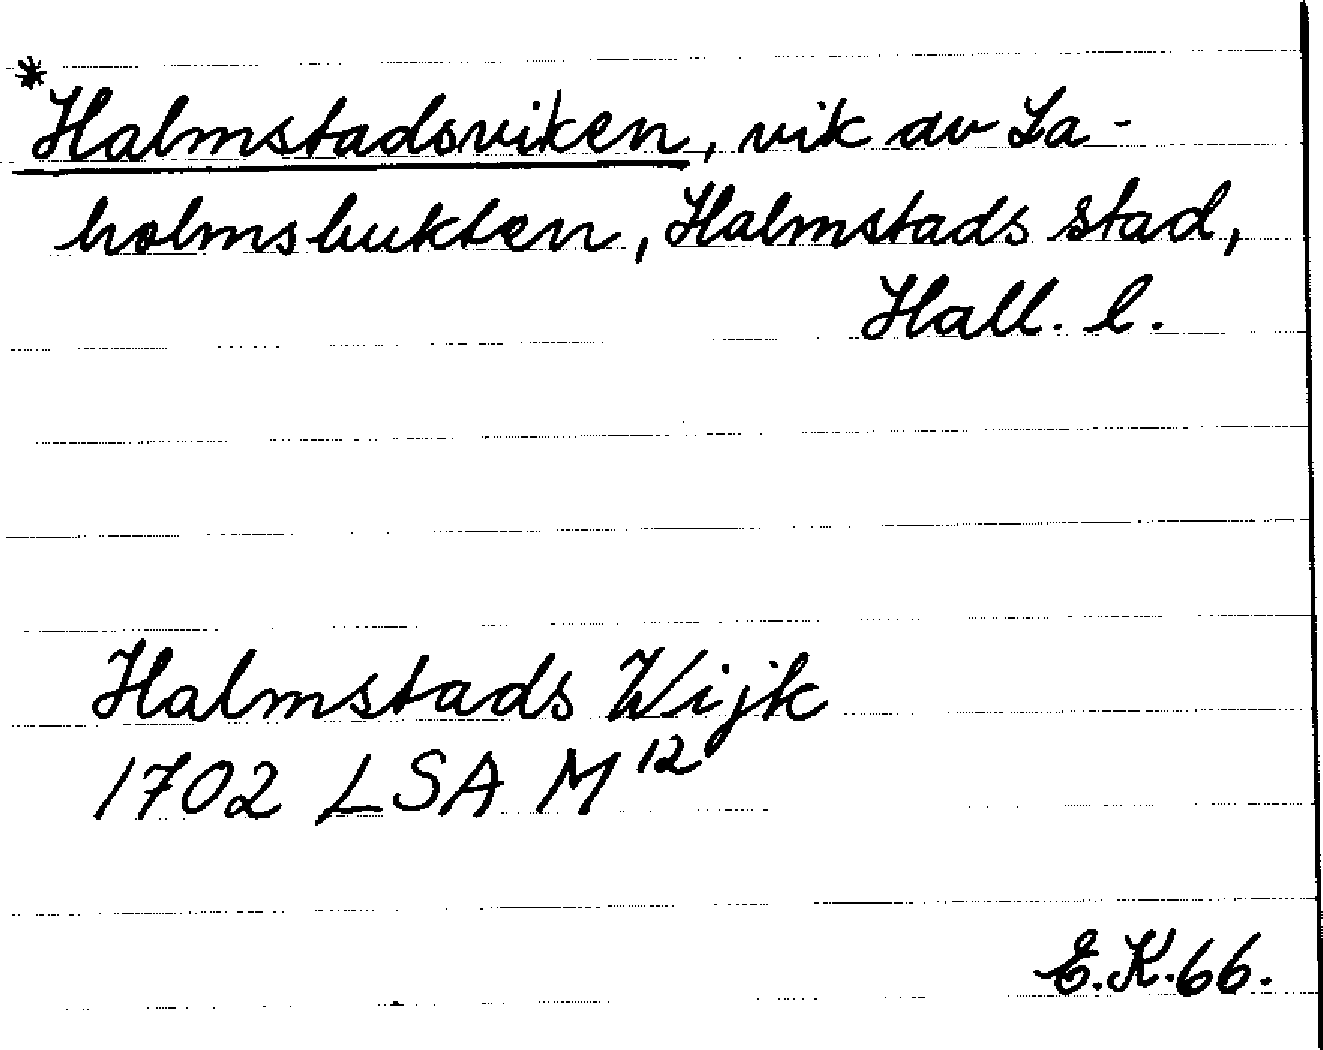 *Halmstadsviken, vik av La-
holmsbukten, Halmstads stad,
Hall. l.
Halmstads Wijk
1702 LSA M¹²
E.K. 66.